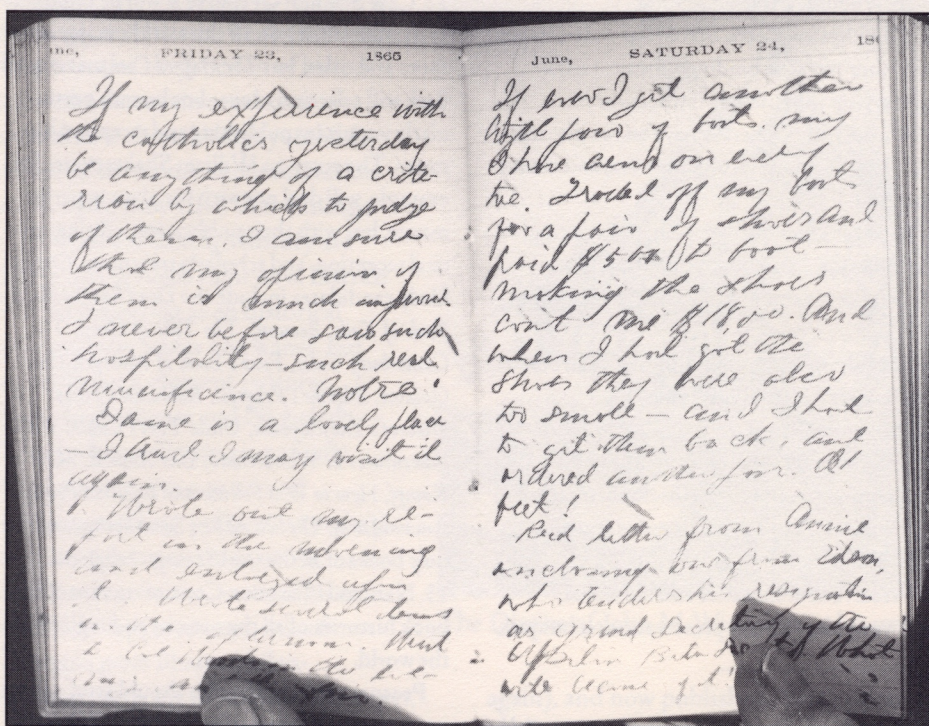 ne, FRIDAY 23, 1865
If my experience with
the catholics yesterday
be anything of a crite-
rion by which to judge
of them, I am sure
that my opinion of
them is much improved
I never before saw such
hospitality — such real
munificence. Notre
Dame is a lovely place
— I trust I may visit it
again.
Wrote out my re-
port in the morning
and enlarged upon
it. Wrote several items
in the afternoon. Went
to
June, SATURDAY 24, 186
If ever I get another
pair of boots. my
I have
Traded off my boots
for a pair of shoes and
paid $5 to boot —
making the shoes
cost me $18,00. And
when I had got the
shoes they were also
too small — and I had
to get them back, and
ordered another pair. O!
feet!
Recd letter from Annie
enclosing one from
who tenders his resignation
as grand Secretary of the
Upsilon What
will come of it!